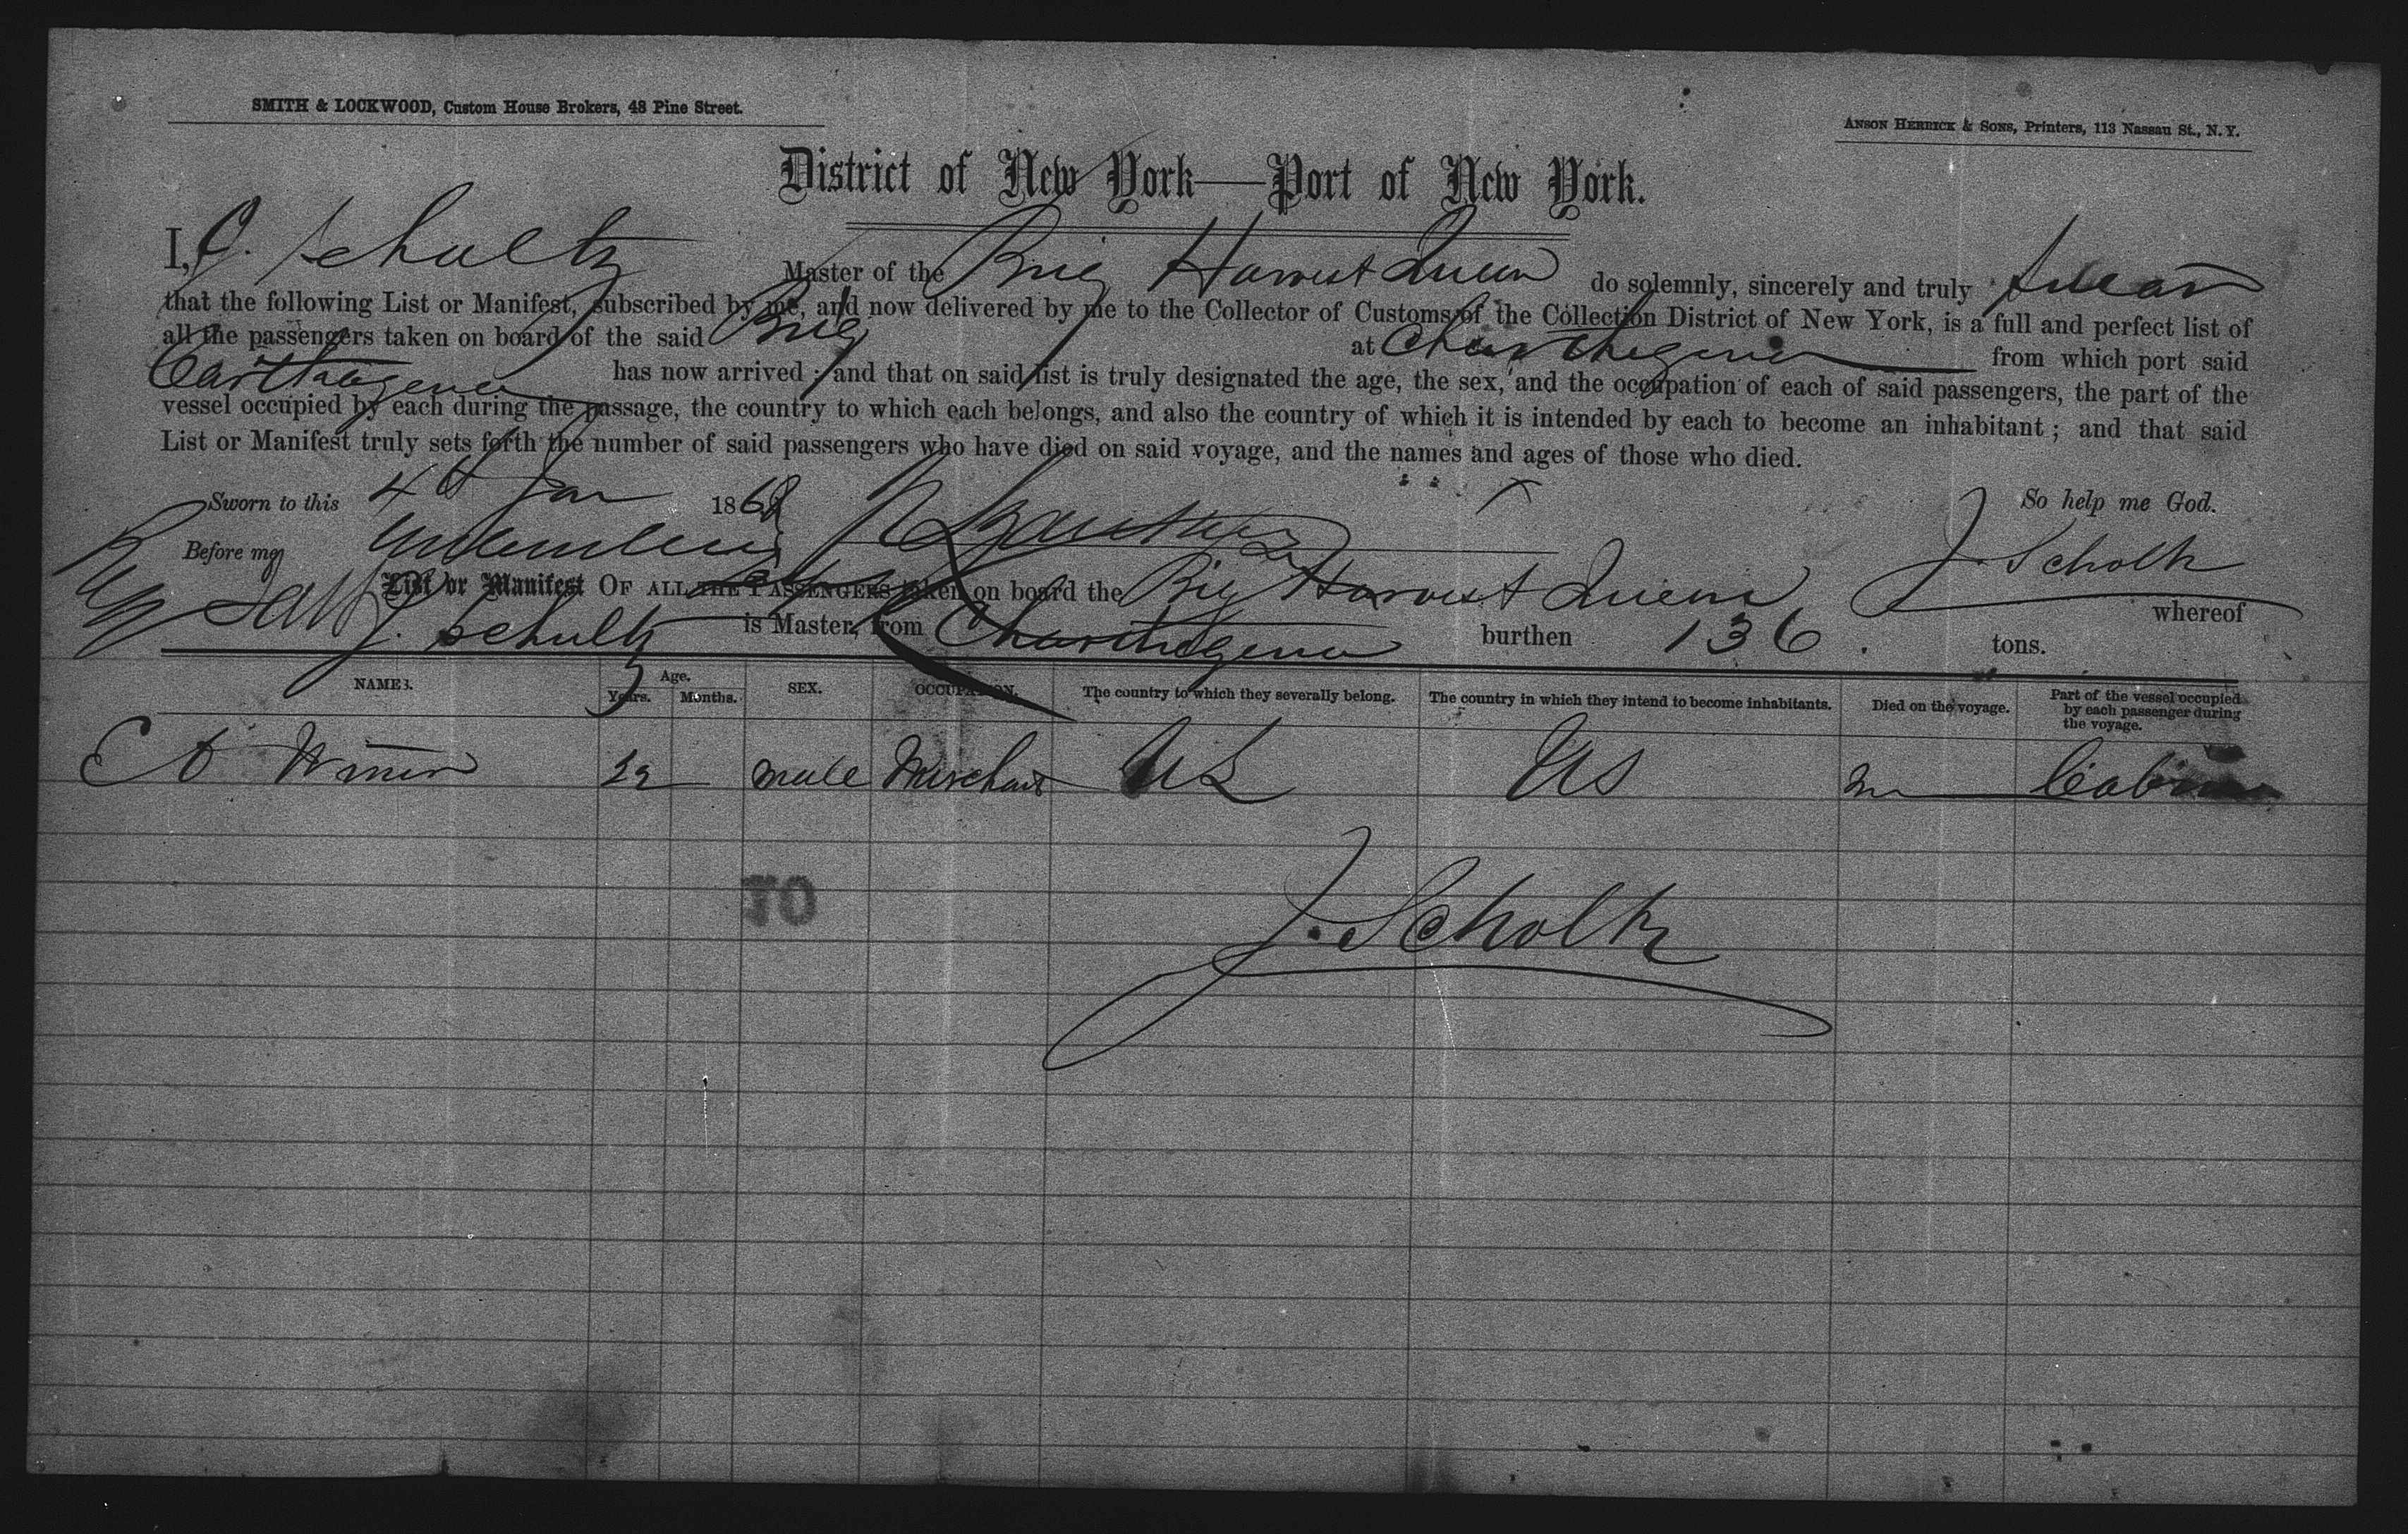 SMITH & LOCKWOOD, Custom House Brokers, 48 Pine Street.
ANSON HERRICK & SONS, Printers, 113 Nassau St., N.Y.
District of New York—Port of New York.
I, J. Schultz Master of the Brig Harvest Queen do solemnly, sincerely and truly swear
that the following List or Manifest, subscribed by me, and now delivered by me to the Collector of Customs of the Collection District of New York, is a full and perfect list of
all the passengers taken on board of the said Brig at Charthegena from which port said
Carthagena has now arrived; and that on said list is truly designated the age, the sex, and the occupation of each of said passengers, the part of the
vessel occupied by each during the passage, the country to which each belongs, and also the country of which it is intended by each to become an inhabitant; and that said
List or Manifest truly sets forth the number of said passengers who have died on said voyage, and the names and ages of those who died.
Sworn to this 4th Jan 1868 So help me God.
Before me J. Scholtz
List or Manifest OF ALL THE PASSENGERS taken on board the Brig Harvest Queen whereof
J. Schultz is Master, from Charthegena burthen 136 tons.
NAMES. Age. Years. Months. SEX. OCCUPATION. The country to which they severally belong. The country in which they intend to become inhabitants. Died on the voyage. Part of the vessel occupied by each passenger during the voyage.
male Merchant US US Cabin
10
J. Scholtz